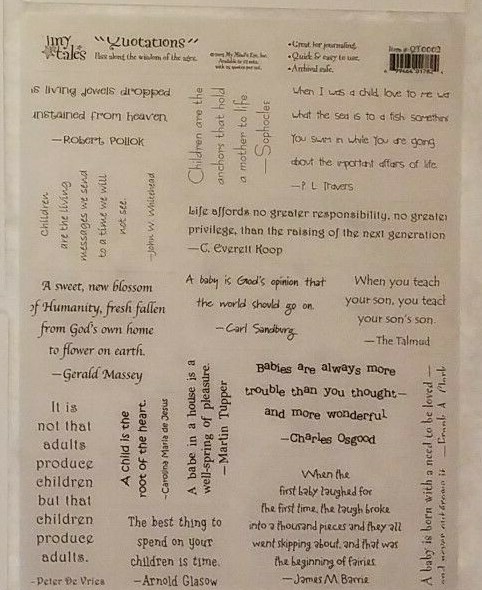 Jiny
tales
"Quotations"
Pass along the wisdom of the ages.
©2003 My Mind's Eye, Inc.
Available in 12 sets,
with 25 quotes per set.
• Great for journaling.
• Quick & easy to use.
• Archival safe.
Item #: QT0002
is living jewels dropped
unstained from heaven.
—Robert Pollok
Children are the
anchors that hold
a mother to life
—Sophocles
When I was a child, love to me wa
what the sea is to a fish: somethin
You swim in while You are going
about the important affairs of life.
—P. L. Travers
Children
are the living
messages we send
to a time we will
not see.
—John W. Whitehead
Life affords no greater responsibility, no greater
privilege, than the raising of the next generation
—C. Everett Koop
A sweet, new blossom
of Humanity, fresh fallen
from God's own home
to flower on earth.
—Gerald Massey
A baby is God's opinion that
the world should go on.
—Carl Sandburg
When you teach
your son, you teach
your son's son.
—The Talmud
It is
not that
adults
produce
children
but that
children
produce
adults.
-Peter De Vries
A child is the
root of the heart.
-Carolina Maria de Jesus
A babe in a house is a
well-spring of pleasure.
—Martin Tupper
Babies are always more
trouble than you thought—
and more wonderful
—Charles Osgood
The best thing to
spend on your
children is time.
—Arnold Glasow
When the
first baby laughed for
the first time, the laugh broke
into a thousand pieces and they all
went skipping about, and that was
the beginning of fairies.
—James M Barrie
A baby is born with a need to be loved —
and never outgrows it. —Frank A. Clark